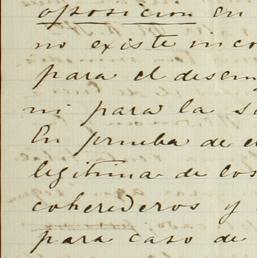 oposicion en
no existe inco
para el desem
ni para la s
En prueba de e
legitima de los
coherederos y
para caso de